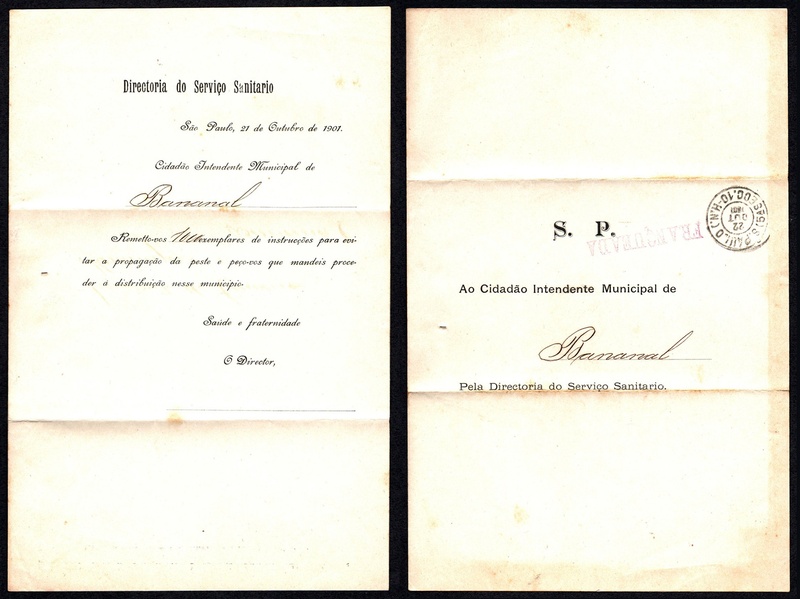 Directoria do Serviço Sanitario
São Paulo, 21 de Outubro de 1901.
Cidadão Intendente Municipal de
Bananal
Remetto-vos exemplares de instrucções para evi-
tar a propagação da peste e peço-vos que mandeis proce-
der á distribuição nesse municipio.
Saúde e fraternidade
O Director,
S. P.
FRANQUEADA
S. PAULO
22
OUT
Ao Cidadão Intendente Municipal de
Bananal
Pela Directoria do Serviço Sanitario.